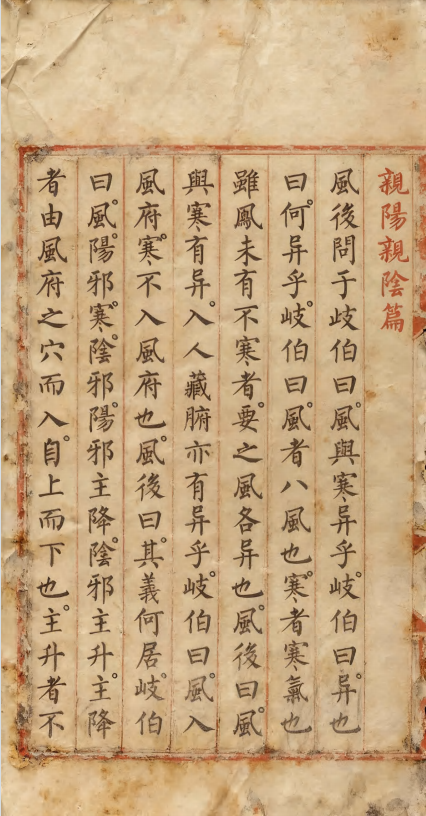 親陽親陰篇
風後問于岐伯曰。風與寒异乎。岐伯曰。异也
曰。何异乎。岐伯曰。風者八風也。寒者寒氣也
雖鳳未有不寒者。要之風各异也。風後曰。風
與寒有异。入人藏腑亦有异乎。岐伯曰。風入
風府。寒不入風府也。風後曰。其義何居。岐伯
曰。風。陽邪。寒。陰邪。陽邪主降。陰邪主升。主降
者由風府之穴而入。自上而下也。主升者不